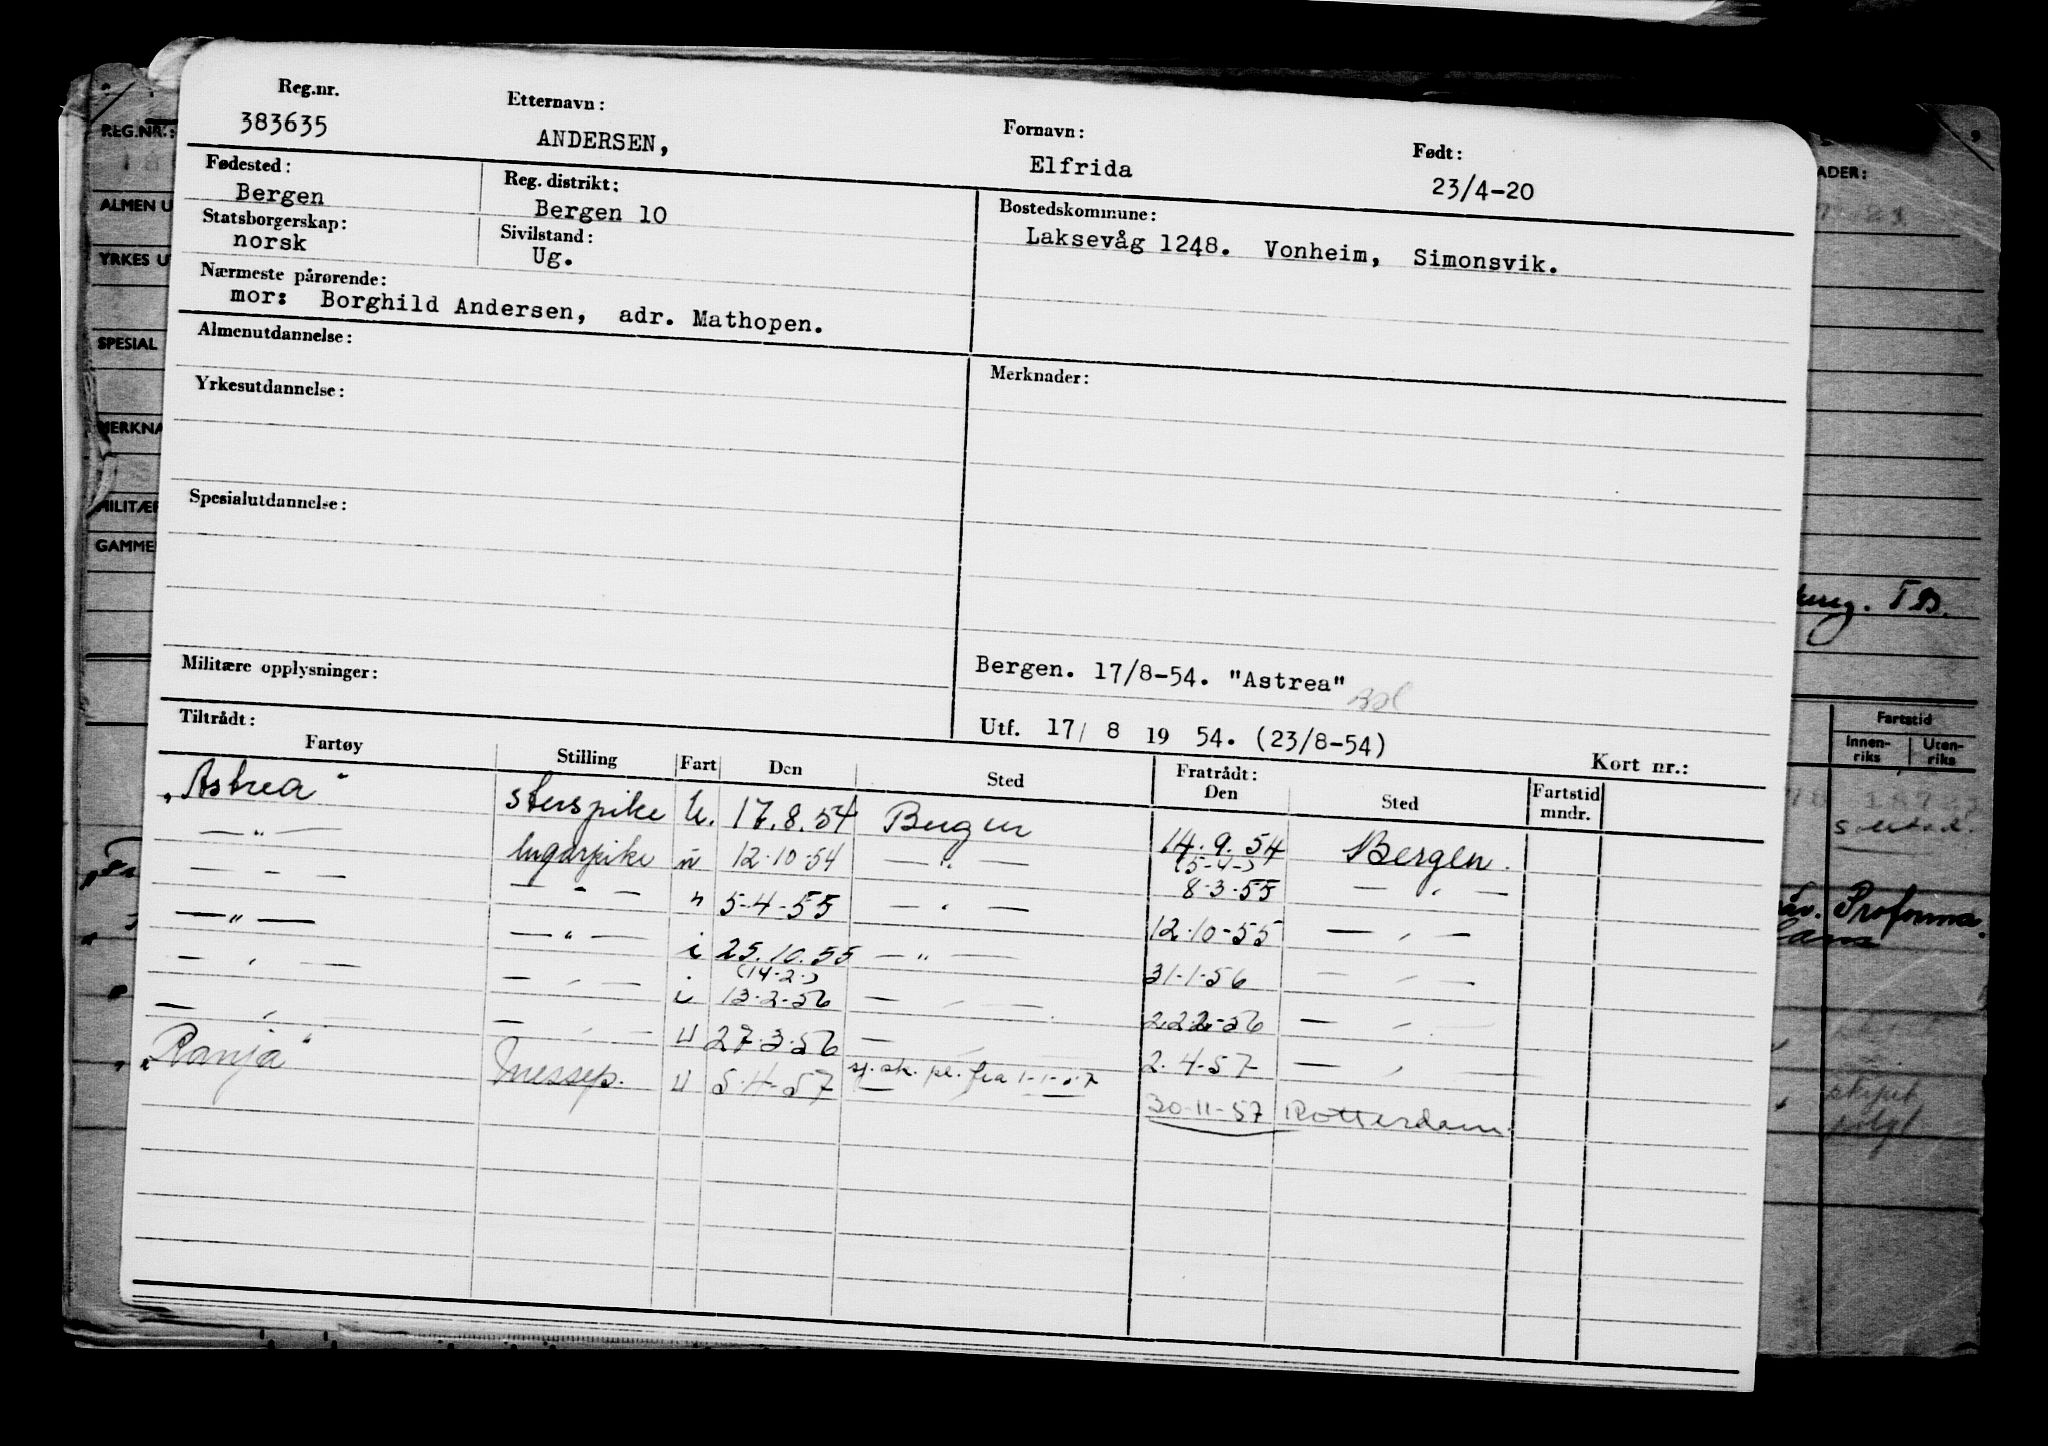 Reg.nr. Etternavn: Fornavn: Født:
383635 ANDERSEN, Elfrida 23/4-20
Fødested: Reg. distrikt: Bostedskommune:
Bergen Bergen 10 Laksevåg 1248. Vonheim, Simonsvik.
Statsborgerskap: Sivilstand:
norsk Ug.
Nærmeste pårørende:
mor: Borghild Andersen, adr. Mathopen.
Almenutdannelse: Merknader:
Yrkesutdannelse:
Spesialutdannelse:
Militære opplysninger: Bergen. 17/8-54. "Astrea"
Utf. 17/ 8 19 54. (23/8-54)
Tiltrådt: Fratrådt: Kort nr.:
Fartøy Stilling Fart Den Sted Den Sted Fartstid mndr.
„Astrea" 17.8.54 Bergen 14.9.54 Bergen.
— " — lugarpike 12.10.54 — " — (5-4-) 8-3-55 — " —
— " — — " — " 5-4-55 — " — 12-10-55 — " —
— " — — " — i 25.10.55 — " — 31-1-56 — " —
— " — — " — i (14-2-) 13-2-56 — " — 22-2-56 — " —
— " — — " — U 27-3-56 — " — 2-4-57 — " —
„Ranja" messep. U 5-4-57 — 30-11-57 Rotterdam.
REG.NR.:
ALMEN U
YRKES U
SPESIAL
MERKNA
MILITÆR
GAMME
ADER:
T.B.
Fartstid
Innen-riks Uten-riks
Proforma.